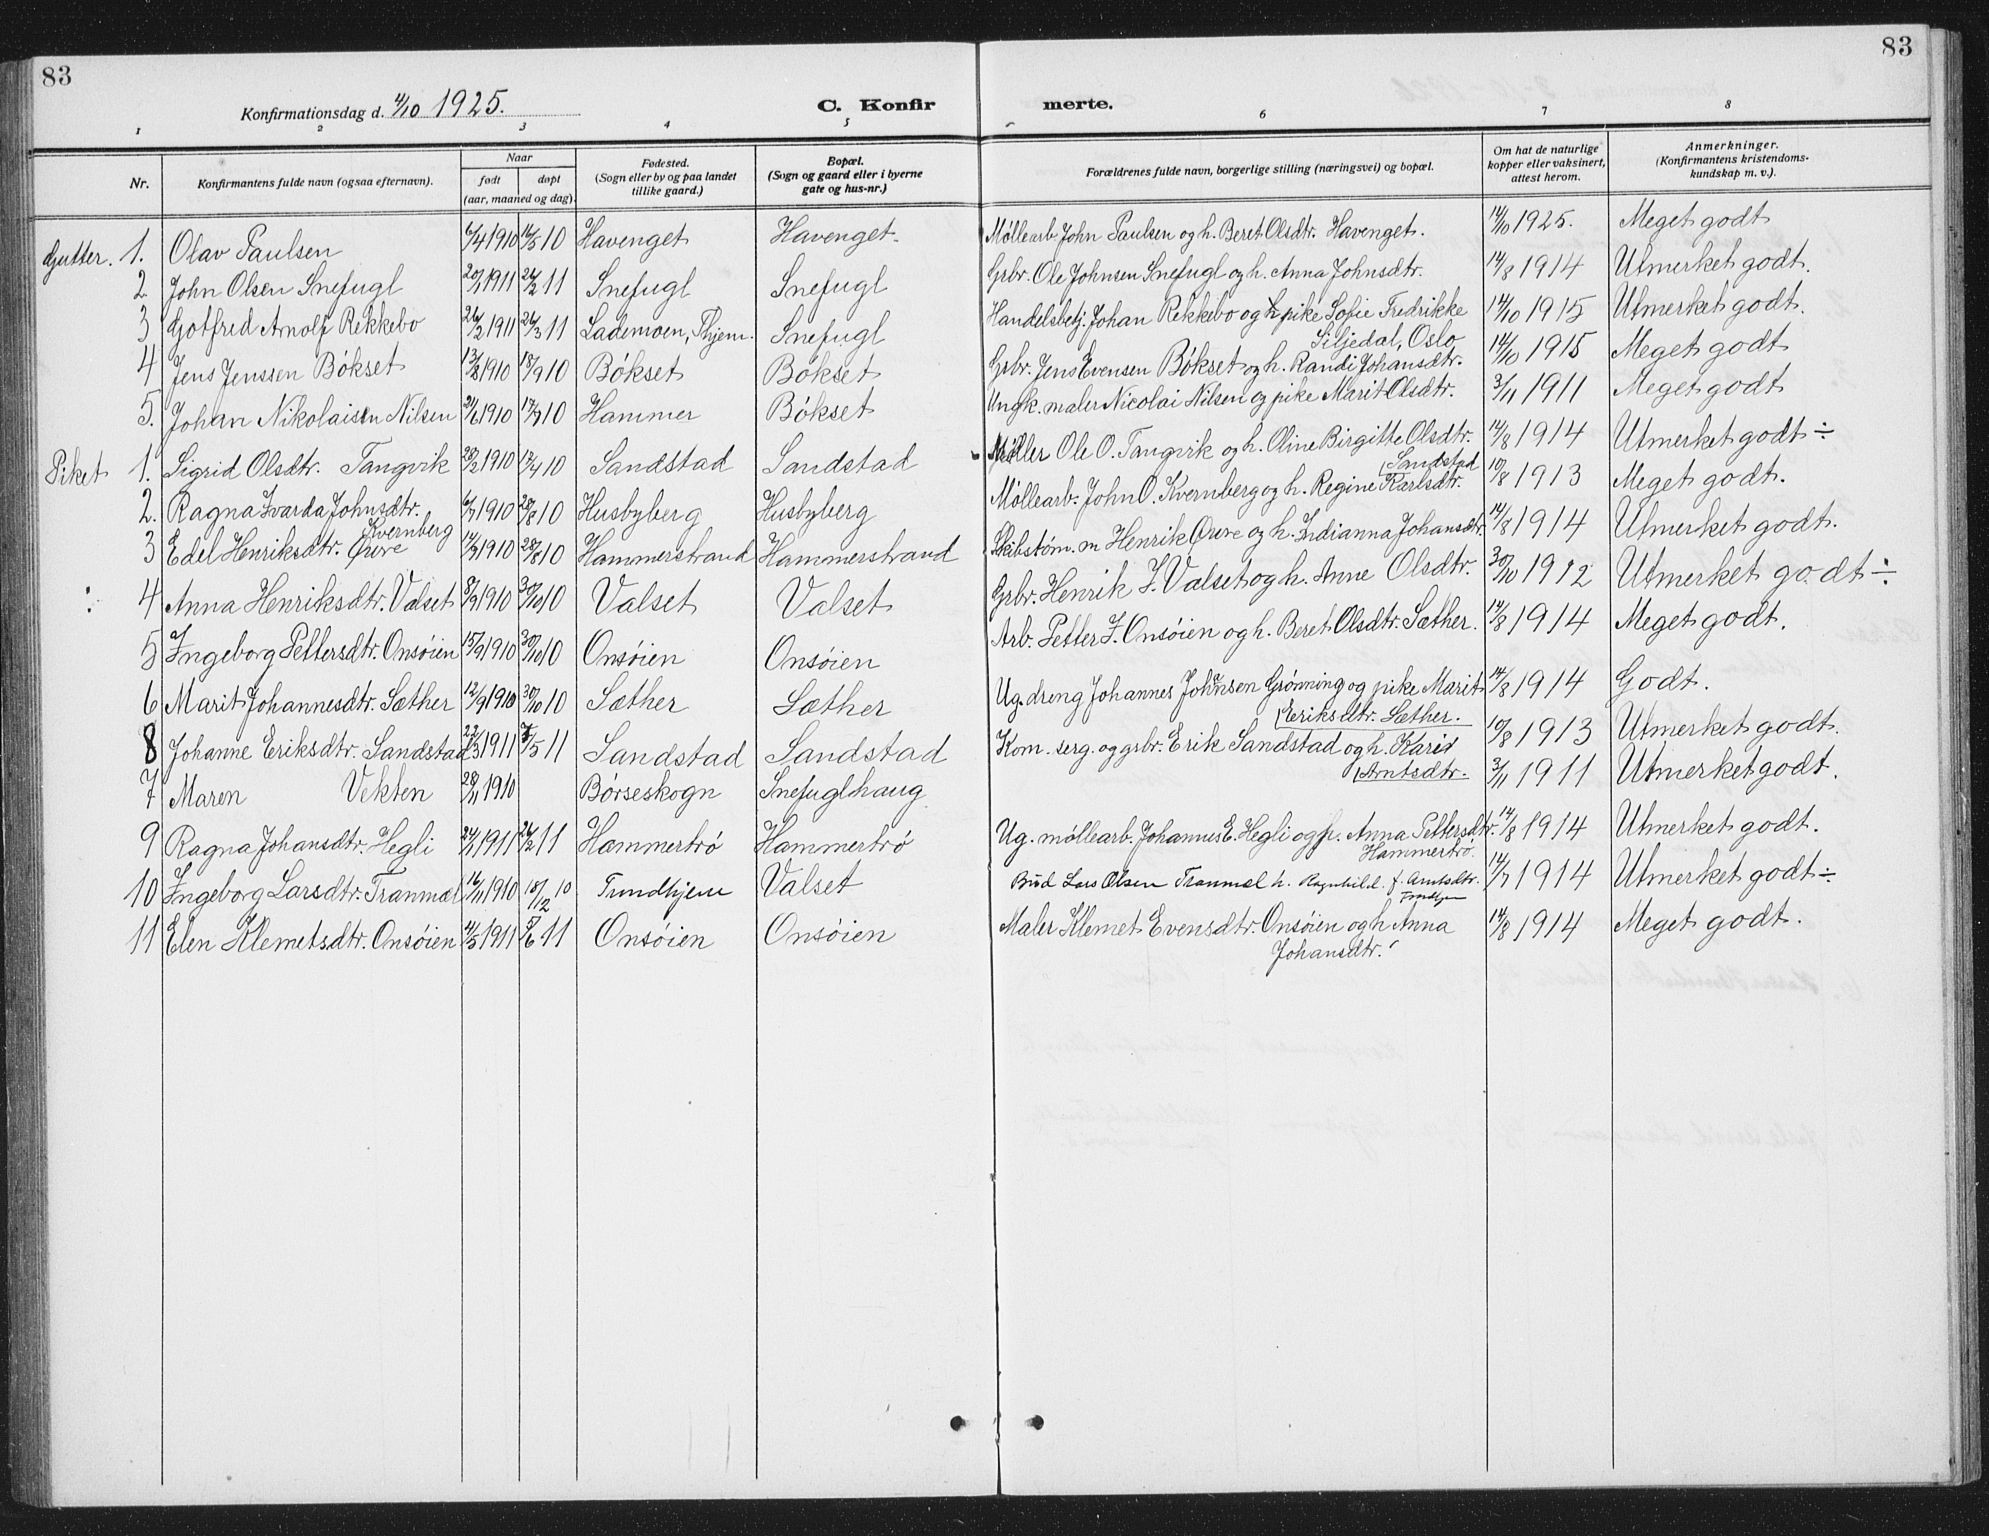 83
83
Konfirmationsdag d. 4/10 1925.
C. Konfir merte.
1 2 3 4 5 6 7 8
Nr. Konfirmantens fulde navn (ogsaa efternavn). Naar født døpt (aar, maaned og dag). Fødested. (Sogn eller by og paa landet tillike gaard.) Bopæl. (Sogn og gaard eller i byerne gate og hus-nr.) Forældrenes fulde navn, borgerlige stilling (næringsvei) og bopæl. Om hat de naturlige kopper eller vaksinert, attest herom. Anmerkninger. (Konfirmantens kristendoms-kundskap m. v.).
Gutter. 1. Olav Paulsen 6/4 1910 16/5 10 Havenget Havenget. Møllearb John Paulsen og h. Beret Olsdtr. Havenget. 14/10 1925. Meget godt
2 John Olsen Snefugl 20/1 1911 26/2 11 Snefugl Snefugl Grbr. Ole Johnsen Snefugl og h. Anna Johnsdtr. 14/8 1914 Utmerket godt.
3 Gotfred Arnolf Rekkebo 26/2 1911 26/3 11 Lademoen, Thjem. Snefugl Handelsbetj. Johan Rekkebo og pike Sofie Fredrikke Siljedal, Oslo 14/10 1915 Utmerket godt.
4 Jens Jenssen Bökset 13/8 1910 18/9 10 Bökset Bökset Grbr. Jens Evensen Bökset og h. Randi Johansdtr. 14/10 1915 Meget godt
5. Johan Nikolaisen Nilsen 21/6 1910 17/7 10 Hammer Bökset Ungk. maler Nicolai Nilsen og pike Marit Olsdtr. 3/11 1911 Meget godt
Piker 1. Sigrid Olsdtr. Tangvik 28/2 1910 17/4 10 Sandstad Sandstad Møller Ole O. Tangvik og h. Oline Birgitte Olsdtr. Sandstad 14/8 1914 Utmerket godt ÷
2. Ragna Zvarda Johnsdtr. Kvernberg 6/7 1910 28/8 10 Husbyberg Husbyberg Møllearb. John O. Kvernberg og h. Regine Karlsdtr. 10/8 1913 Meget godt.
3 Edel Henriksdtr. Øreve 14/7 1910 28/8 10 Hammerstrand Hammerstrand Skibstøm. m Henrik Øreve og h. Indianna Johansdtr 14/8 1914 Utmerket godt.
4 Anna Henriksdtr. Valset 8/9 1910 30/10 10 Valset Valset Grbr. Henrik J. Valset og h. Anne Olsdtr. 30/10 1912 Utmerket godt ÷
5 Ingeborg Pettersdtr. Onsöien 15/9 1910 30/10 10 Onsöien Onsöien Arb. Petter J. Onsöien og h. Beret Olsdtr. Sæther. 14/8 1914 Meget godt.
6 Marit Johannesdtr. Sæther 12/9 1910 30/10 10 Sæther Sæther Ug. dreng Johannes Johansen Grönning og pike Marit Eriksdtr. Sæther. 14/8 1914 Godt.
8 Johanne Eriksdtr. Sandstad 22/3 1911 7/5 11 Sandstad Sandstad Kom. serg. og grbr. Erik Sandstad og h. Kari Arntsdtr. 10/8 1913 Utmerket godt.
7 Maren Vekten 28/11 1910 Börseskogn Snefuglhaug 3/11 1911 Utmerket godt.
9 Ragna Johansdtr. Hegli 24/1 1911 26/2 11 Hammertrö Hammertrö Ug. möllearb. Johannus E. Hegli og p. Anna Pettersdtr. Hammertrö. 14/8 1914 Utmerket godt.
10 Ingeborg Larsdtr. Tranmæl 16/11 1910 18/12 10 Trondhjem Valset Bud Lars Olsen Tranmæl h. Ragnhild f. Arntsdtr. Trondhjem 14/7 1914 Utmerket godt ÷
11 Elen Klemetsdtr. Onsöien 14/5 1911 5/6 11 Onsöien Onsöien Maler Klemet Evensdtr. Onsöien og h Anna Johansdtr. 14/8 1914 Meget godt.